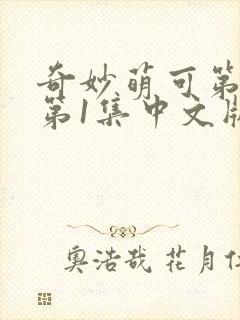 奇妙萌可第
第1集中文版
奥浩哉 花月仁